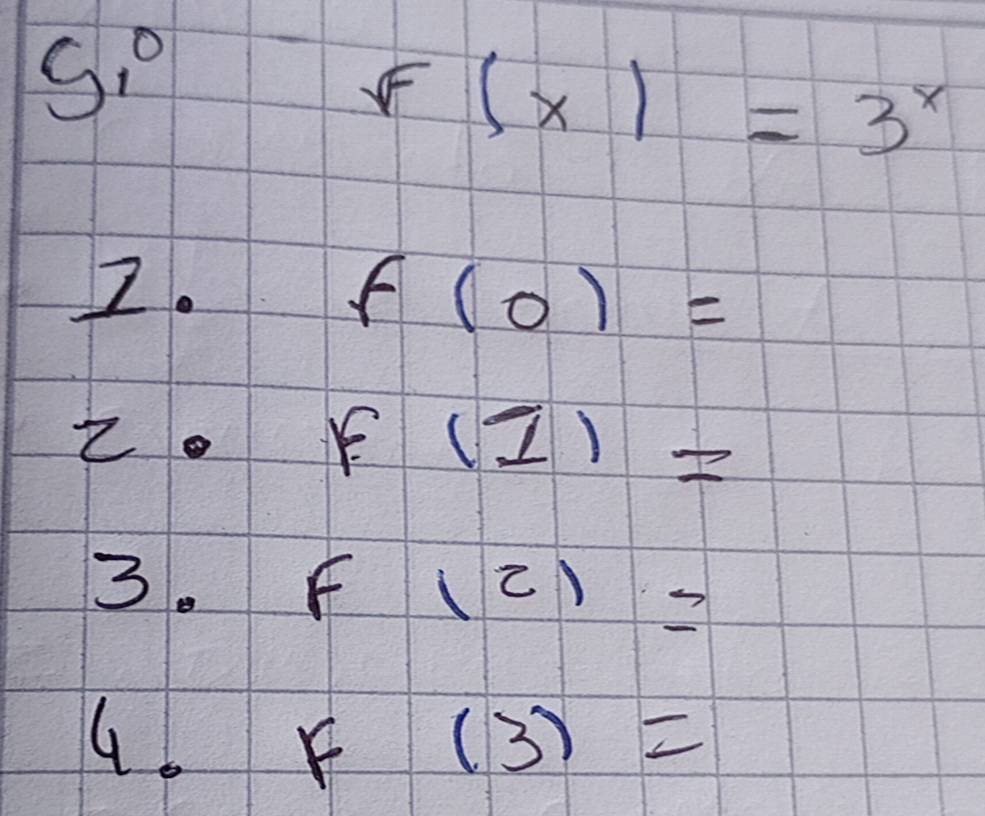 f(x) = 3ˣ
1. f(0) =
2. f(1) =
3. f(2) =
4. f(3) =